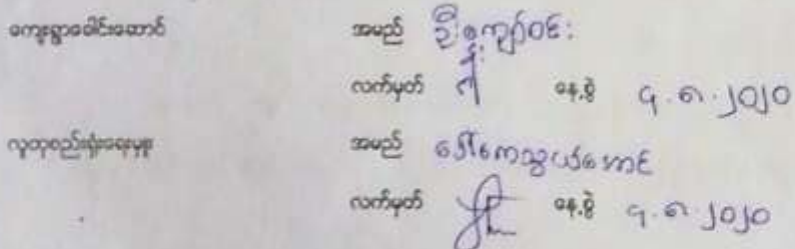 ကျေးရွာခေါင်းဆောင် အမည် ဦးကျော်ဝင်း
လက်မှတ် နေ့စွဲ ၄.၈.၂၀၂၀
လူထုစည်းရုံးရေးမှူး အမည် ဒေါ်ကေသွယ်အောင်
လက်မှတ် နေ့စွဲ ၄.၈.၂၀၂၀